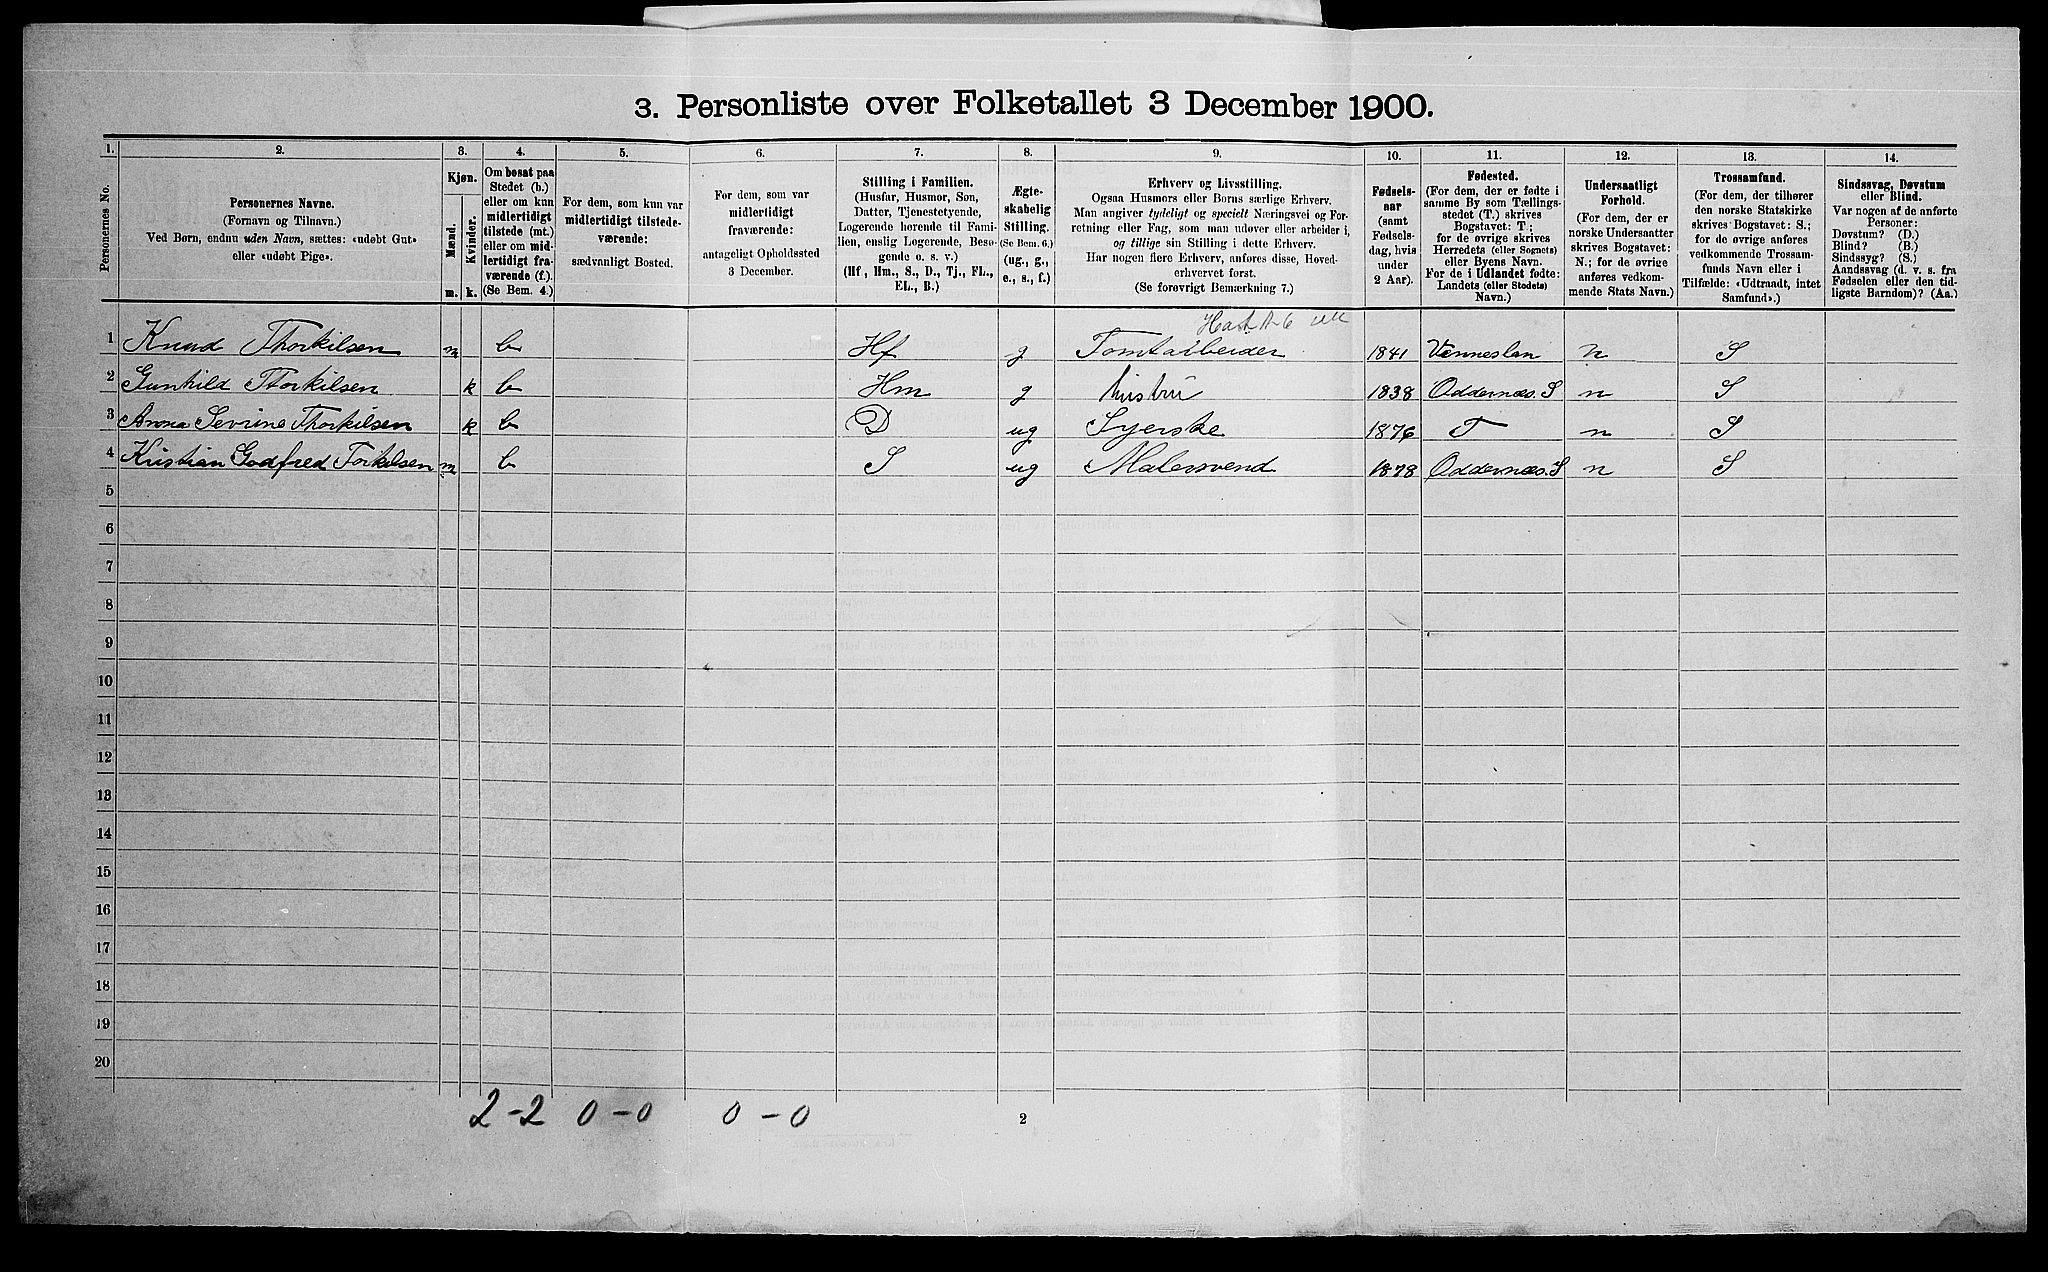 3. Personliste over Folketallet 3 December 1900.
1. 2. 3. 4. 5. 6. 7. 8. 9. 10. 11. 12. 13. 14.
Personernes No.
Personernes Navne.
(Fornavn og Tilnavn.)
Ved Børn, endnu uden Navn, sættes: «udøbt Gut»
eller «udøbt Pige».
Kjøn.
Mænd.
Kvinder.
m. k.
Om bosat paa
Stedet (b.)
eller om kun
midlertidigt
tilstede (mt.)
eller om mid-
lertidigt fra-
værende (f.).
(Se Bem. 4.)
For dem, som kun var
midlertidigt tilstede-
værende:
sædvanligt Bosted.
For dem, som var
midlertidigt
fraværende:
antageligt Opholdssted
3 December.
Stilling i Familien.
(Husfar, Husmor, Søn,
Datter, Tjenestetyende,
Logerende hørende til Fami-
lien, enslig Logerende, Besø-
gende o. s. v.)
(Hf, Hm., S., D., Tj., FL.,
EL., B.)
Ægte-
skabelig
Stilling.
(Se Bem. 6.)
(ug., g.,
e., s., f.)
Erhverv og Livsstilling.
Ogsaa Husmors eller Børns særlige Erhverv.
Man angiver tydeligt og specielt Næringsvei og For-
retning eller Fag, som man udøver eller arbeider i,
og tillige sin Stilling i dette Erhverv.
Har nogen flere Erhverv, anføres disse, Hoved-
erhvervet forst.
(Se forøvrigt Bemærkning 7.)
Fødsels-
aar
(samt
Fødsels-
dag, hvis
under
2 Aar).
Fødested.
(For dem, der er fødte i
samme By som Tællings-
stedet (T.) skrives
Bogstavet: T.;
for de øvrige skrives
Herredets (eller Sognets)
eller Byens Navn.
For de i Udlandet fødte:
Landets (eller Stedets)
Navn.)
Undersaatligt
Forhold.
(For dem, der er
norske Undersaatter
skrives Bogstavet:
N.; for de øvrige
anføres vedkom-
mende Stats Navn.)
Trossamfund.
(For dem, der tilhører
den norske Statskirke
skrives Bogstavet: S.;
for de øvrige anføres
vedkommende Trossam-
funds Navn eller i
Tilfælde: «Udtraadt, intet
Samfund».)
Sindssvag, Døvstum
eller Blind.
Var nogen af de anførte
Personer:
Døvstum? (D.)
Blind? (B.)
Sindssyg? (S.)
Aandssvag (d. v. s. fra
Fødselen eller den tid-
ligste Barndom)? (Aa.)
1 Knud Thorkilsen m b Hf g Tomtarbeider 1841 Venneslan n S
2 Gunhild Thorkilsen k b Hm g hustru 1838 Oddernæs. S n S
3 Anna Sevrine Thorkilsen k b D ug Syerske 1876 T n S
4 Kristian Godfred Torkilsen m b S ug Malersvend 1878 Oddernæs. S n S
5
6
7
8
9
10
11
12
13
14
15
16
17
18
19
20
2-2 0-0 0-0 2